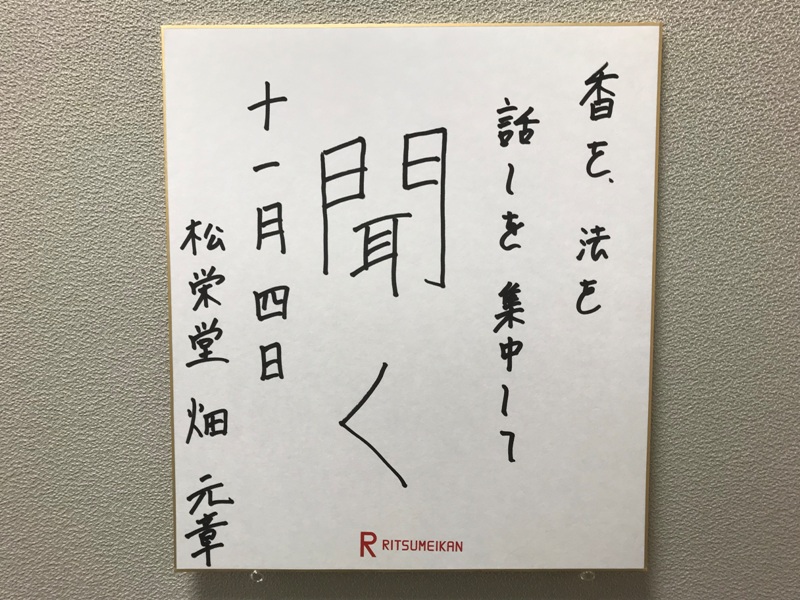 香を、法を
話しを集中して
聞く
十一月四日
松栄堂 畑 元章
RITSUMEIKAN